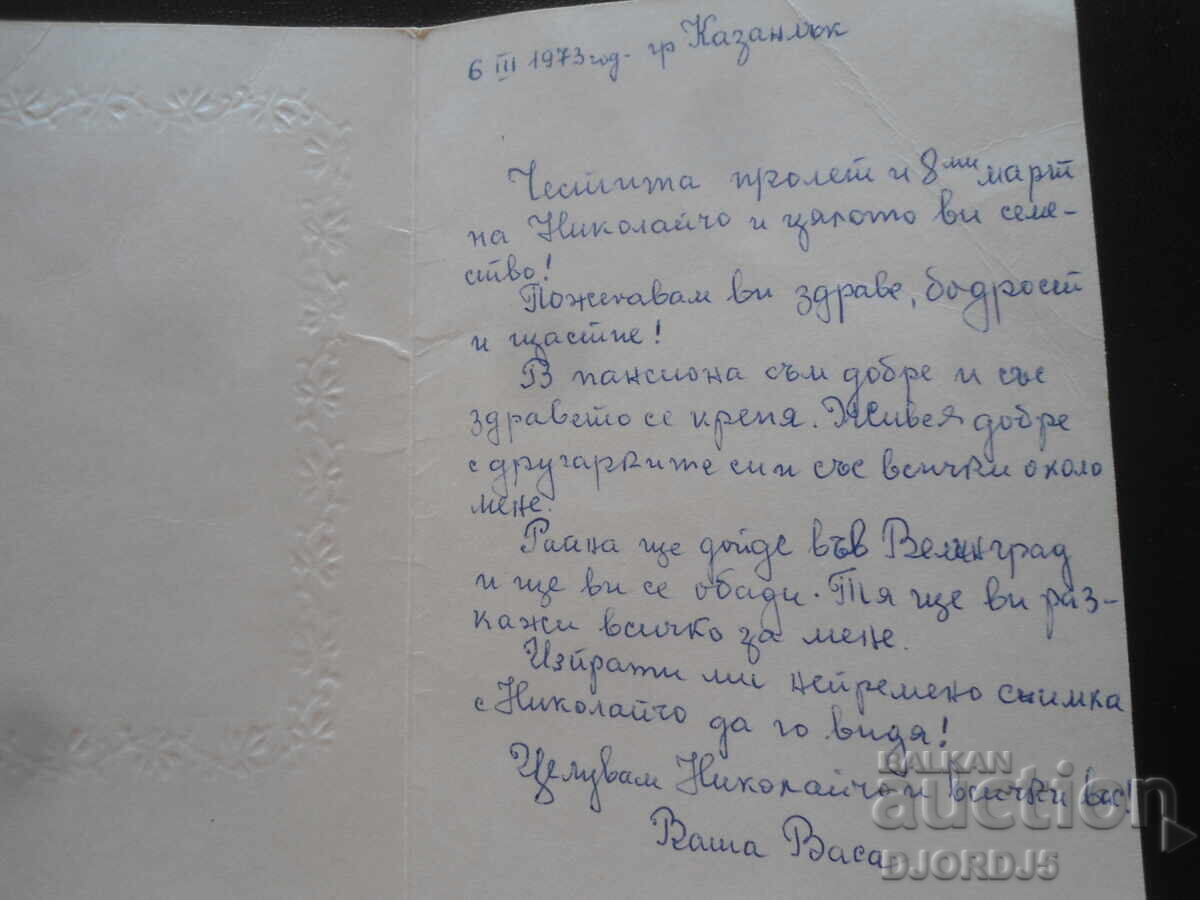 6 III 1973 год. гр Казанлък
Честита пролет и 8ми март
на Николайчо и цялото ви семе-
ство!
Пожелавам ви здраве, бодрост
и щастие!
В пансиона съм добре и със
здравето се крепя. Живея добре
с другарките си и със всички около
мене.
ще дойде във Велинград
и ще ви се обади. Тя ще ви раз-
кажи всичко за мене.
Изпрати ми непремено снимка
с Николайчо да го видя!
Целувам Николайчо и всички вас!
Ваша Васа
BALKAN
auction
DJORDJ5